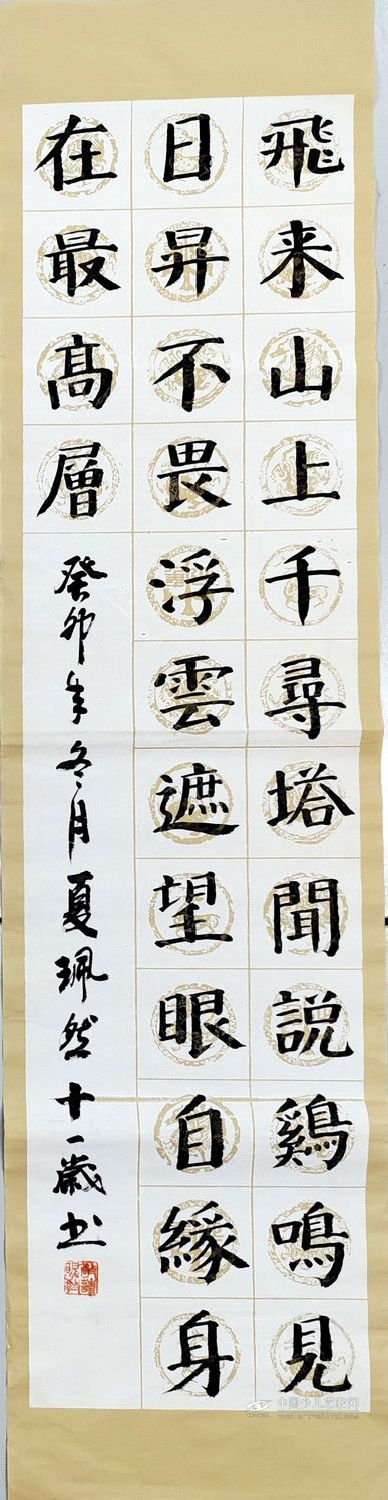 飛来山上千尋塔聞説鷄鳴見
日昇不畏浮雲遮望眼自緣身
在最高層
癸卯年冬月夏珮然十一歲书
中国少儿艺教网
www.art-child.com